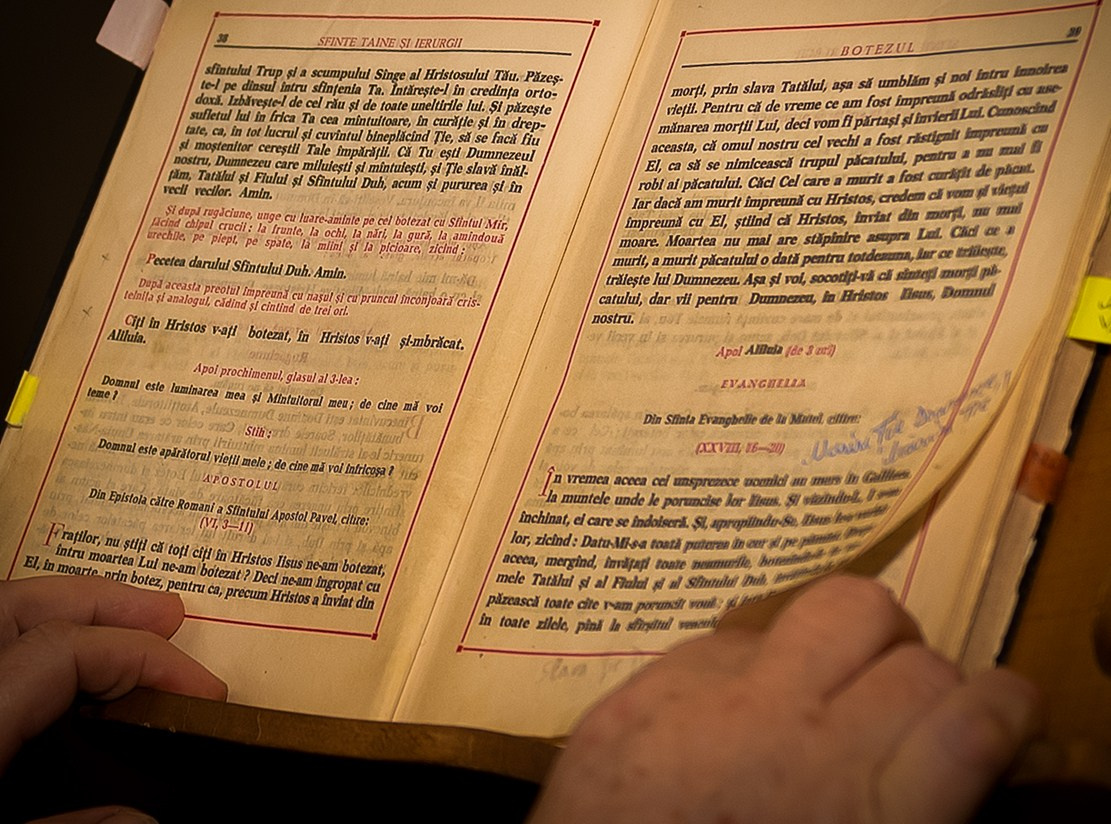 38
SFINTE TAINE ȘI IERURGII
sfîntului Trup și a scumpului Singe al Hristosului Tău. Păzeș-
te-l pe dinsul întru sfințenia Ta. Întărește-l în credința orto-
doxă. Izbăvește-l de cel rău și de toate uneltirile lui. Și păzește
sufletul lui în frica Ta cea mîntuitoare, în curăție și în drep-
tate, ca, în tot lucrul și cuvîntul bineplăcînd Ție, să se facă fiu
și moștenitor cereștii Tale împărății. Că Tu ești Dumnezeul
nostru, Dumnezeu care miluiești și mîntuiești, și Ție slavă înăl-
țăm, Tatălui și Fiului și Sfîntului Duh, acum și pururea și în
vecii vecilor. Amin.
Și după rugăciune, unge cu luare-aminte pe cel botezat cu Sfîntul Mir,
făcînd chipul crucii : la frunte, la ochi, la nări, la gură, la amîndouă
urechile, pe piept, pe spate, la mîini și la picioare, zicînd :
Pecetea darului Sfîntului Duh. Amin.
După aceasta preotul împreună cu nașul și cu pruncul înconjoară cris-
telnița și analogul, cădind și cîntînd de trei ori.
Cîți în Hristos v-ați botezat, în Hristos v-ați și-mbrăcat.
Aliluia.
Apoi prochimenul, glasul al 3-lea :
Domnul este luminarea mea și Mîntuitorul meu ; de cine mă voi
teme ?
Stih :
Domnul este apărătorul vieții mele ; de cine mă voi înfricoșa ?
APOSTOLUL
Din Epistola către Romani a Sfîntului Apostol Pavel, citire:
(VI, 3—11)
Fraților, nu știți că toți cîți în Hristos Iisus ne-am botezat,
întru moartea Lui ne-am botezat ? Deci ne-am îngropat cu
El, în moarte, prin botez, pentru ca, precum Hristos a înviat din
BOTEZUL
39
morți, prin slava Tatălui, așa să umblăm și noi întru înnoirea
vieții. Pentru că de vreme ce am fost împreună odrăsliți cu ase-
mănarea morții Lui, deci vom fi părtași și învierii Lui. Cunoscînd
aceasta, că omul nostru cel vechi a fost răstignit împreună cu
El, ca să se nimicească trupul păcatului, pentru a nu mai fi
robi ai păcatului. Căci Cel care a murit a fost curățit de păcat.
Iar dacă am murit împreună cu Hristos, credem că vom și viețui
împreună cu El, știind că Hristos, înviat din morți, nu mai
moare. Moartea nu mai are stăpînire asupra Lui. Căci ce a
murit, a murit păcatului o dată pentru totdeauna, iar ce trăiește,
trăiește lui Dumnezeu. Așa și voi, socotiți-vă că sînteți morți pă-
catului, dar vii pentru Dumnezeu, în Hristos Iisus, Domnul
nostru.
Apoi Aliluia (de 3 ori)
EVANGHELIA
Din Sfînta Evanghelie de la Matei, citire:
(XXVIII, 16—20)
În vremea aceea cei unsprezece ucenici au mers în Galileea,
la muntele unde le poruncise lor Iisus. Și văzîndu-L I s-au
închinat, ei care se îndoiseră. Și, apropiindu-Se, Iisus le-a vorbit
lor, zicînd : Datu-Mi-s-a toată puterea în cer și pe pămînt.
aceea, mergînd, învățați toate neamurile, botezîndu-le în
mele Tatălui și al Fiului și al Sfîntului Duh,
păzească toate cîte v-am poruncit vouă ; și
în toate zilele, pînă la sfîrșitul
Slava